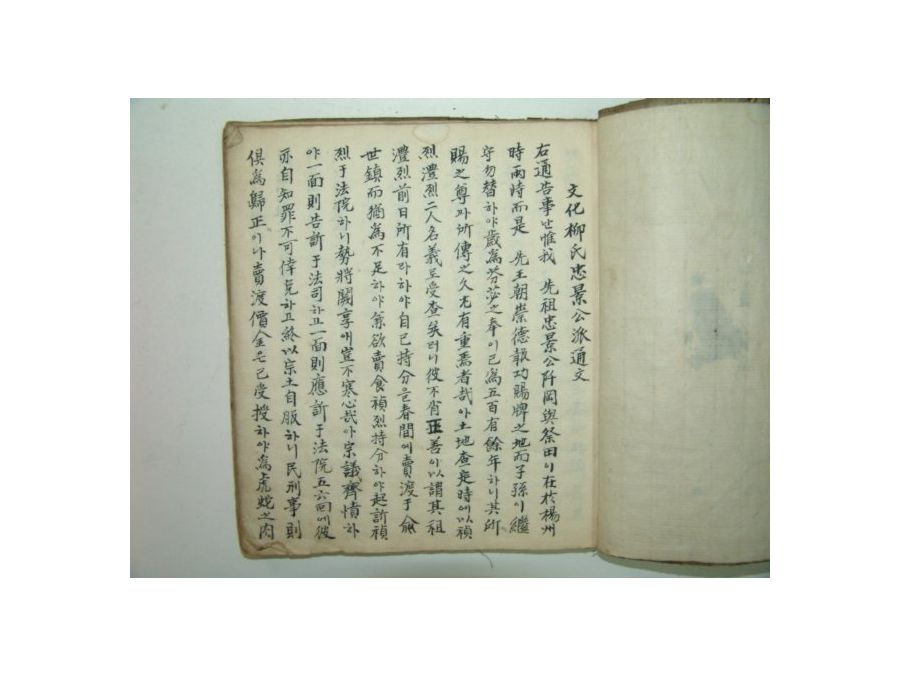 文化柳氏忠景公派通文
右通告事 惟我 先祖忠景公阡岡與祭田이在於楊州
時兩時而是 先王朝崇德報功賜牌之地而子孫이繼
守勿替하야歲爲芬苾之奉이已爲五百有餘年하니其所
賜之尊과所傳之久尤有重焉者哉아土地查定時에以禎
烈澧烈二人名義로受査矣러니彼不肖正善아以謂其祖
澧烈前日所有라하야自己持分을春間에賣渡于兪
世鎭而猶爲不足하야兼欲賣食禎烈持分하야起訴禎
烈于法院하니勢將闕享에豈不寒心哉아宗議齊憤하
야一面則告訴于法司하고一面則應訴于法院五六回에彼
亦自知罪不可倖免하고然以宗土自服하니民刑事則
俱爲歸正이나賣渡價金은已受授하야爲虎蛇之內